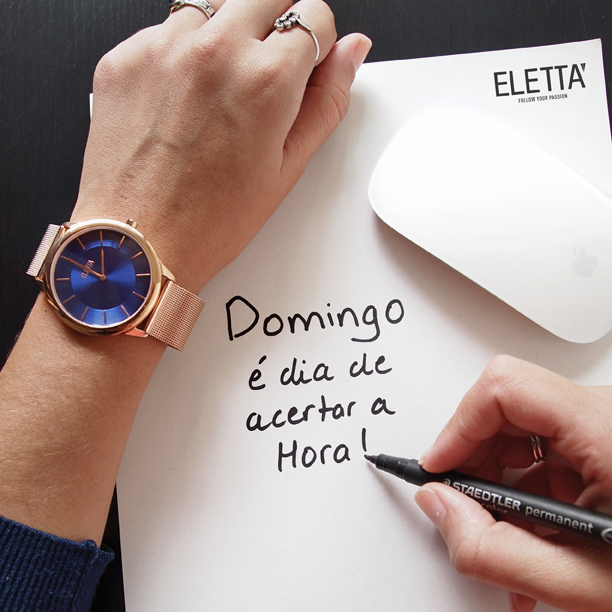 ELETTA
FOLLOW YOUR PASSION
ELETTA
Domingo
é dia de
acertar a
Hora!
STAEDTLER permanent